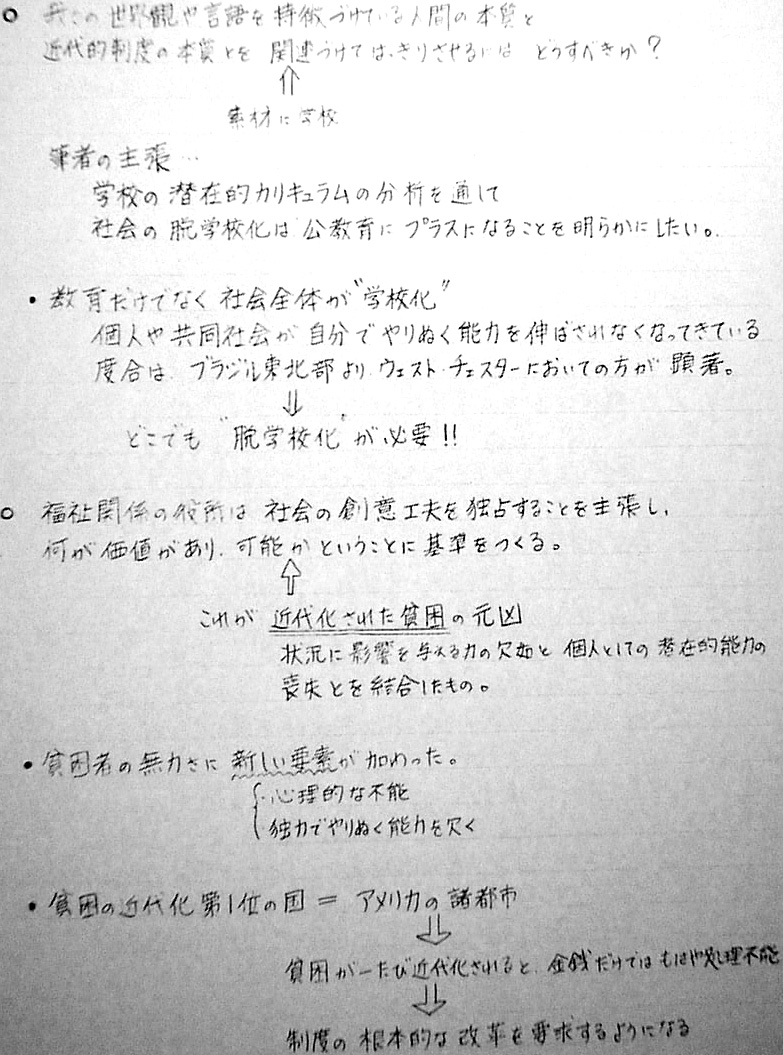 ○ 我々の世界観や言語を特徴づけている人間の本質と
近代的制度の本質とを 関連づけてはっきりさせるには どうすべきか?
⇑
素材に学校
筆者の主張…
学校の潜在的カリキュラムの分析を通して
社会の脱学校化は公教育にプラスになることを明らかにしたい。
・教育だけでなく社会全体が“学校化”
個人や共同社会が自分でやりぬく能力を伸ばされなくなってきている
度合は、ブラジル東北部よりウェスト・チェスターにおいての方が顕著。
⇓
どこでも“脱学校化”が必要!!
○ 福祉関係の役所は 社会の創意工夫を独占することを主張し、
何が価値があり、可能かということに基準をつくる。
⇑
これが 近代化された貧困の元凶
状況に影響を与える力の欠如と 個人としての潜在的能力の
喪失とを結合したもの。
・貧困者の無力さに新しい要素が加わった。
{・心理的な不能
独力でやりぬく能力を欠く
・貧困の近代化第1位の国 = アメリカの諸都市
⇓
貧困が一たび近代化されると、金銭だけではもはや処理不能
⇓
制度の根本的な改革を要求するようになる